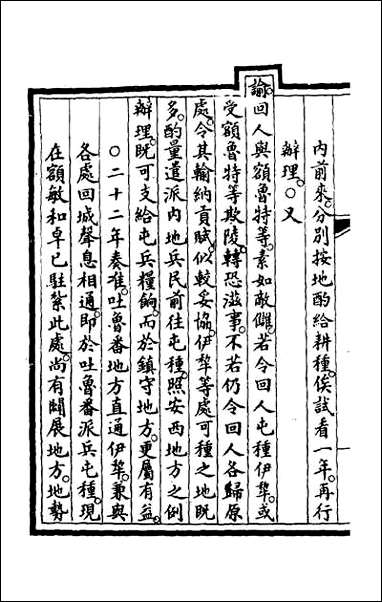 內前來。分別按地酌給耕種。俟試看一年。再行
辦理。○又
諭。回人與額魯特等。素如敵讎。若令回人屯種伊犂。或
受額魯特等欺陵。轉恐滋事。不若仍令回人各歸原
處。令其輸納貢賦。似較妥協。伊犂等處可種之地既
多。酌量遣派內地兵民前往屯種。照安西地方之例
辦理。既可支給屯兵糧餉。而於鎭守地方。更屬有益。
○二十二年奏准。吐魯番地方直通伊犂。兼與
各處回城聲息相通。即於吐魯番派兵屯種。現
在額敏和卓已駐紮此處。尚有闢展地方。地勢